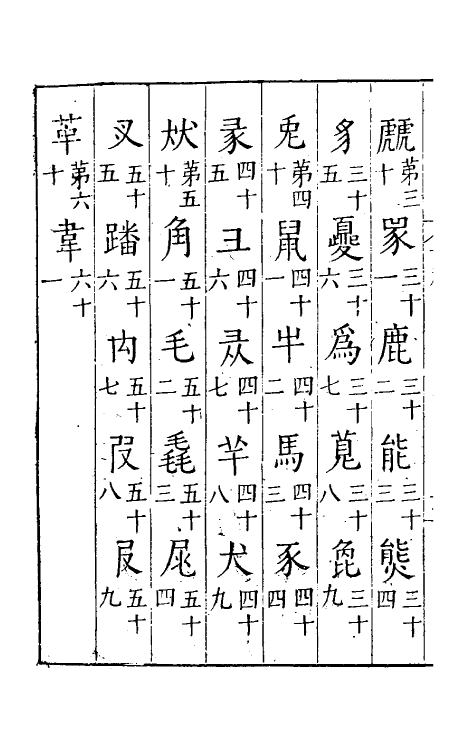 虤第三十 三十一 鹿三十二 能三十三 熋三十四
豸三十五 夔三十六 爲三十七 萈三十八 㲋三十九
兔第四十 鼠四十一 牛四十二 馬四十三 豕四十四
四十五 彑四十六 四十七 羊四十八 犬四十九
第五十 角五十一 毛五十二 毳五十三 尾五十四
叉五十五 蹯五十六 禸五十七 五十八 五十九
革第六十 韋六十一